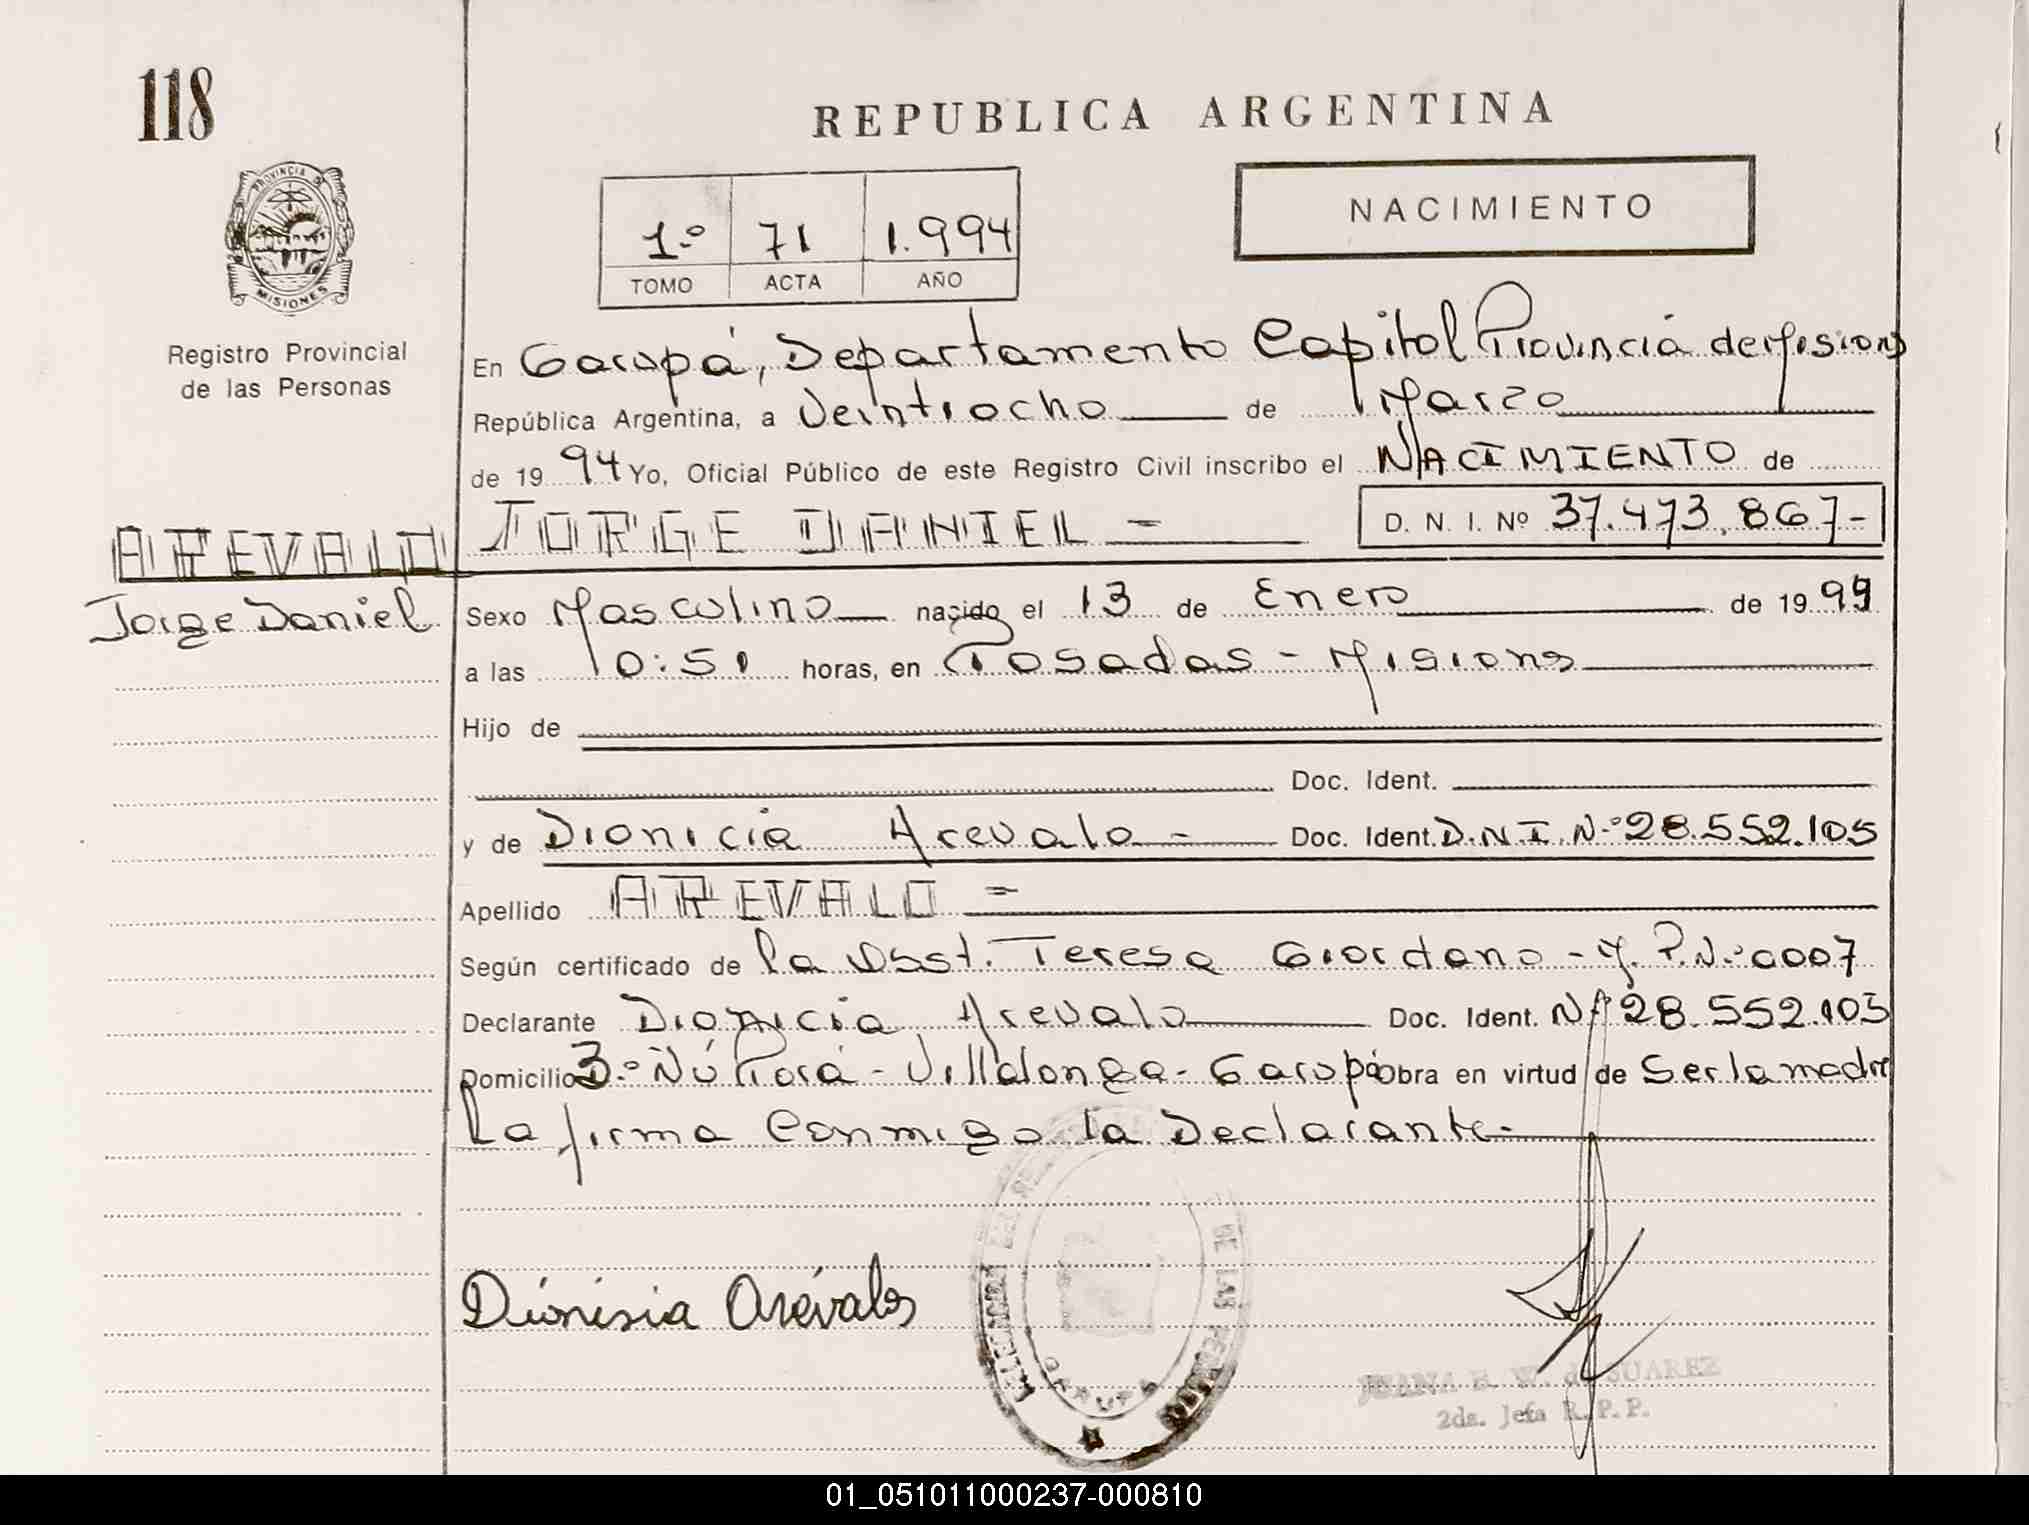 118
REPUBLICA ARGENTINA
PROVINCIA DE
MISIONES
Registro Provincial
de las Personas
1.º 71 1.994
TOMO ACTA AÑO
NACIMIENTO
En Garupá, Departamento Capital Provincia de Misiones
República Argentina, a Veintiocho de Marzo
de 19 94 Yo, Oficial Público de este Registro Civil inscribo el NACIMIENTO de
JORGE DANIEL = D. N. I. Nº 37.473.867-
AREVALO
Jorge Daniel
Sexo Masculino nacido el 13 de Enero de 19 94
a las 10:50 horas, en Posadas - Misiones
Hijo de
Doc. Ident.
y de Dionicia Arevalo = Doc. Ident. D.N.I.N.º 28.552.105
Apellido AREVALO =
Según certificado de la Obst. Teresa Giordano - M.P.N.º 0007
Declarante Dionicia Arevalo Doc. Ident. Nº 28.552.105
Domicilio Bº Ñú Porá - Villalonga - Garupá Obra en virtud de Ser la madre
La firma Conmigo la Declarante-
DE LAS
GARUPA
Dionisia Arévalos
JUANA E. W. de SUAREZ
2da. Jefa R.P.P.
01_051011000237-000810